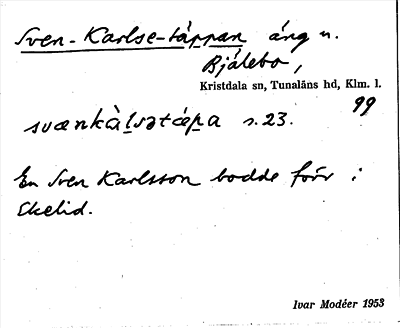 Sven-Karlse-täppan äng n.
Bjälebo,
Kristdala sn, Tunaläns hd, Klm. l.
99
svænkàḷsətǽp̣a s. 23.
En Sven Karlsson bodde förr i
Ekelid.
Ivar Modéer 1953